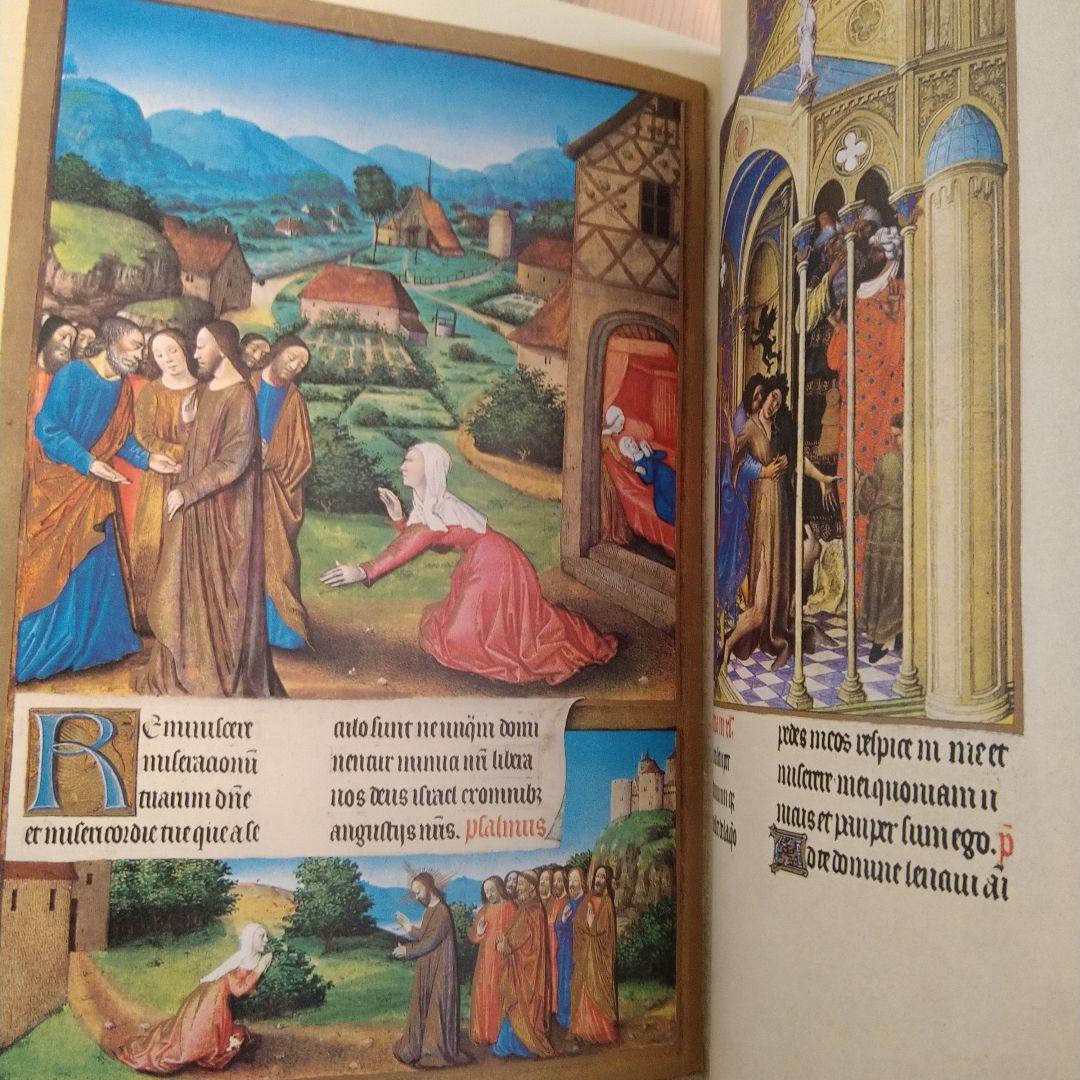 Reminiscere
miseracionū
tuarum dñe
et misericordie tue que a se
culo sunt ne unq̄m domi
nentur inimici nr̄i libera
nos deus israel ex omnibꝫ
angustijs nr̄is. psalmus
pedes meos respice in me et
miserere mei quoniam ū
nicus et pauper sum ego. p̄
Ad te domine levavi aī